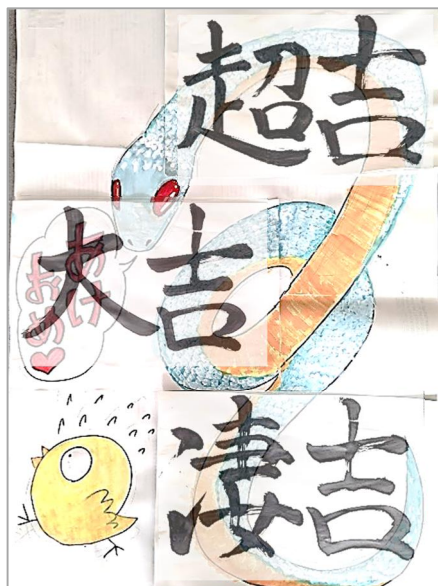 超吉
大吉
あけ
おめ
凄吉